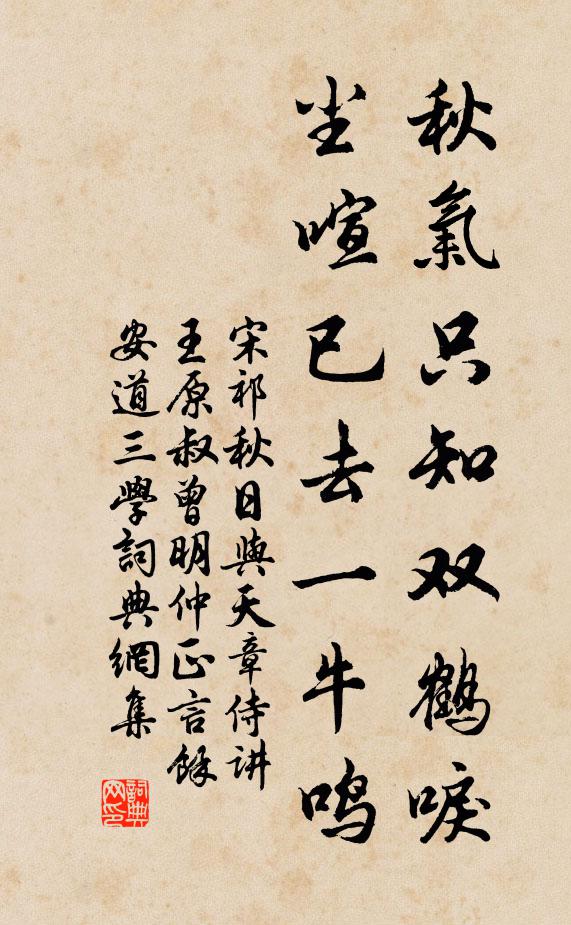 秋氣只知双鹤唳
尘喧已去一牛鸣
宋祁秋日與天章侍讲
王原叔曾明仲正言餘
安道三學詞典網集
詞典网印